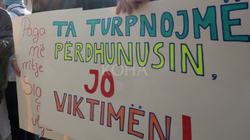 TA TURPNOJMË
PËRDHUNUSIN,
JO
VIKTIMËN!
Paga
më
KOHA